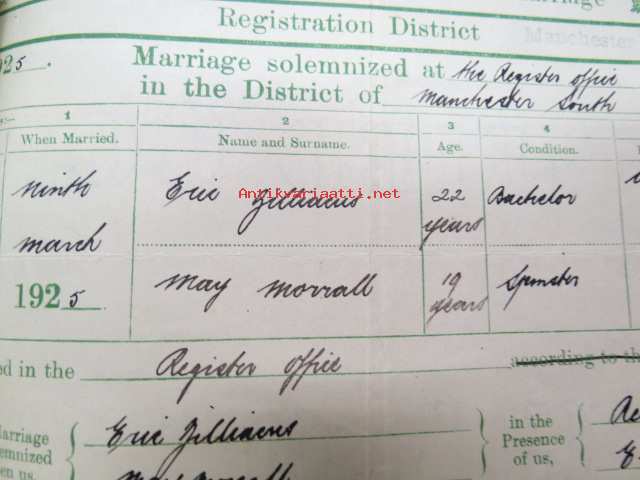 Marriage
Registration District Manchester
925. Marriage solemnized at the Register office
in the District of Manchester South
1 2 3 4
When Married. Name and Surname. Age. Condition.
Ninth
March
1925
Eric Zilliacus 22 years Bachelor
Antikvariaatti.net
May Morrall 19 years Spinster
ed in the Register office according to the
Marriage
solemnized
een us,
Eric Zilliacus
May Morrall
in the
Presence
of us,